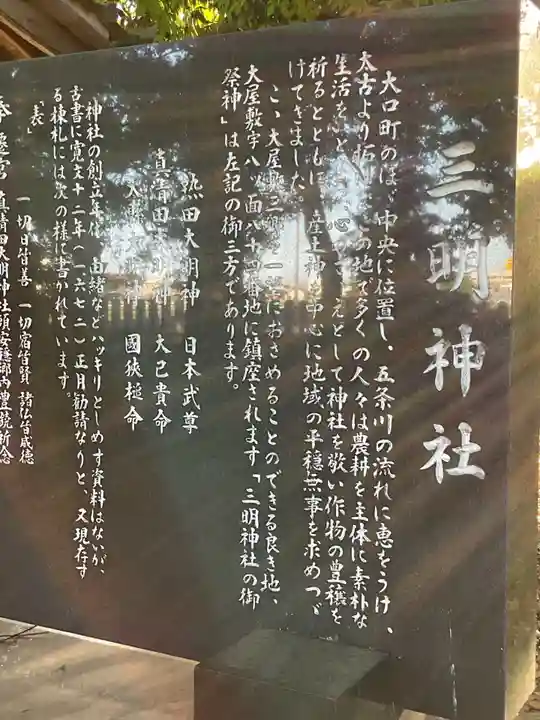 三明神社
大口町のほゞ中央に位置し、五条川の流れに恵をうけ、
太古より拓けこの地で多くの人々は農耕を主体に素朴な
生活を心の えとして神社を敬い作物の豊穣を
祈るとともに 産土神を中心に地域の平穏無事を求めつゞ
けてきました。
こゝ大屋敷 郷を一望におさめることのできる良き地、
大屋敷字八ツ面八十四番地に鎮座されます「三明神社の御
祭神」は左記の御三方であります。
熱田大明神 日本武尊
真清田大明神 大己貴命
大縣大明神 國狭槌命
神社の創立年代、由緒などハッキリとしめす資料はないが、
古書に寛文十二年(一六七二)正月勧請なりと、又現存す
る棟札には次の様に書かれています。
「表」
一切日皆善 一切宿皆賢 諸仏皆威徳
奉遷宮 真清田大明神社頭安穏郷内豊饒祈念